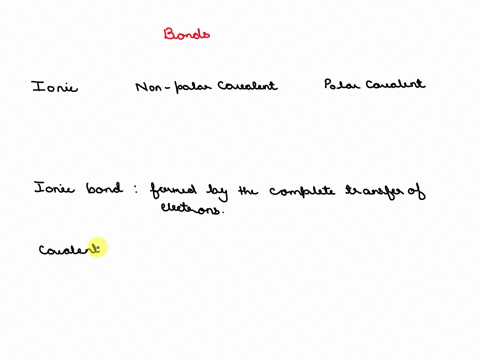 Bonds
Ionic Non-polar Covalent Polar Covalent
Ionic bond : formed by the complete transfer of
electrons.
Covalent